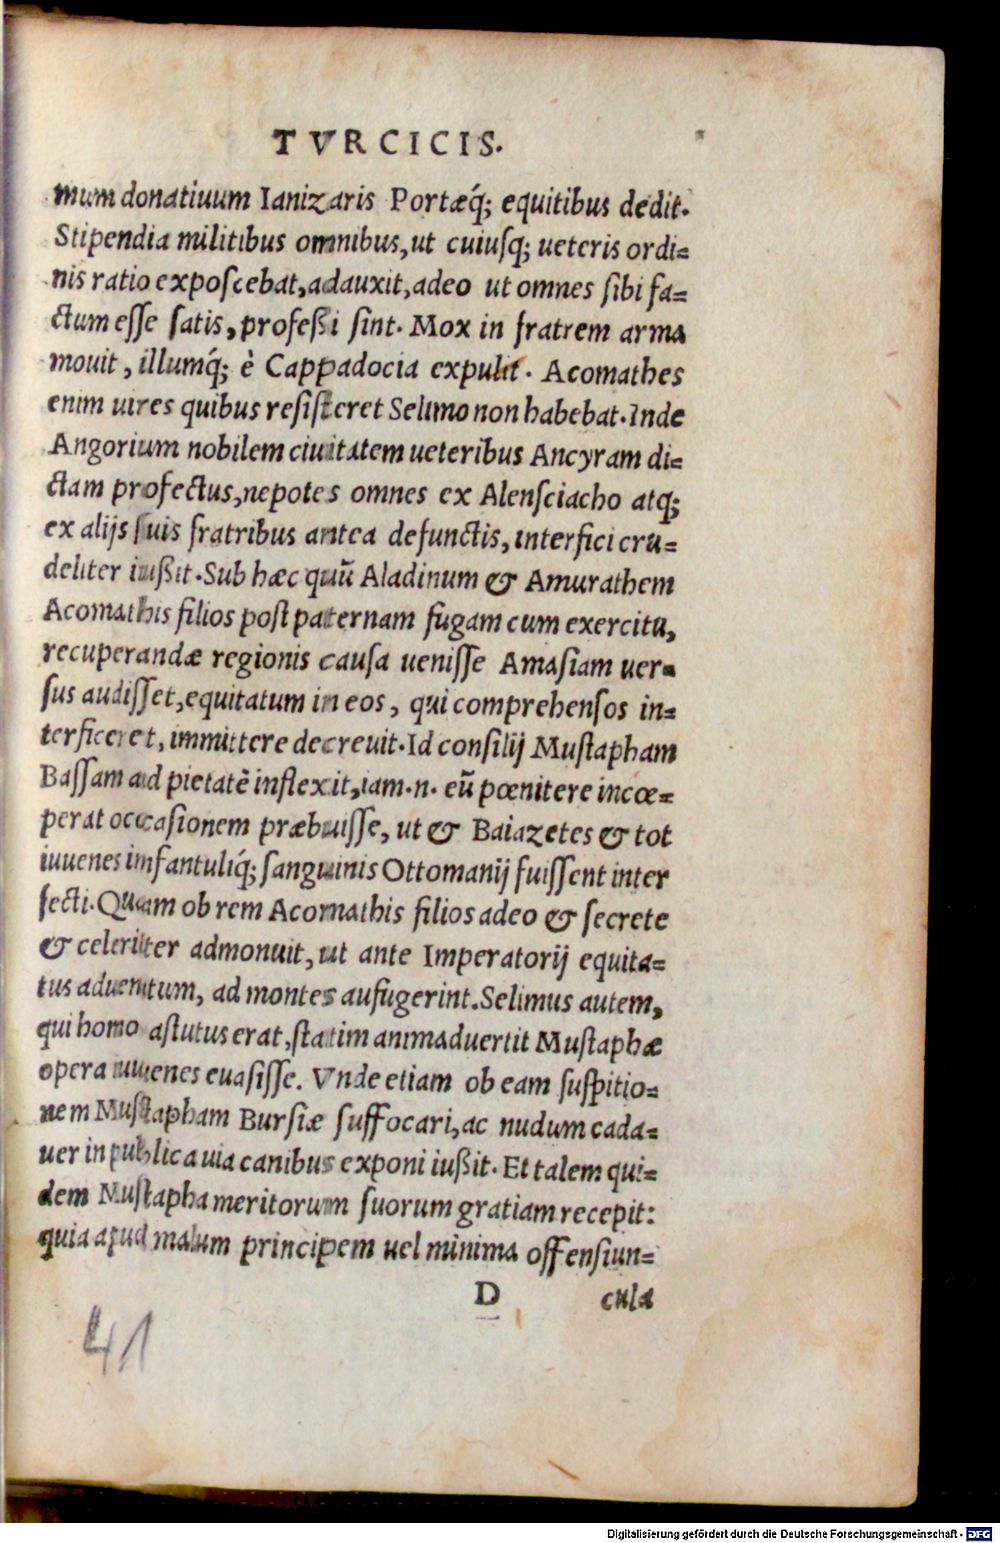 TVRCICIS.
mum donatiuum Ianizaris Portæq́; equitibus dedit.
Stipendia militibus omnibus, ut cuiusq; ueteris ordi=
nis ratio exposcebat, adauxit, adeo ut omnes sibi fa=
ctum esse satis, profeßi sint. Mox in fratrem arma
mouit, illumq́; è Cappadocia expulit. Acomathes
enim uires quibus resisteret Selimo non habebat. Inde
Angorium nobilem ciuitatem ueteribus Ancyram di=
ctam profectus, nepotes omnes ex Alensciacho atq;
ex alijs suis fratribus antea defunctis, interfici cru=
deliter iußit. Sub hæc quũ Aladinum & Amurathem
Acomathis filios post paternam fugam cum exercitu,
recuperandæ regionis causa uenisse Amasiam uer=
sus audisset, equitatum in eos, qui comprehensos in=
terficeret, immittere decreuit. Id consilij Mustapham
Bassam ad pietatẽ inflexit, iam .n. eũ pœnitere incœ=
perat occasionem præbuisse, ut & Baiazetes & tot
iuuenes imfantuliq́; sanguinis Ottomanij fuissent inter
fecti. Quam ob rem Acomathis filios adeo & secrete
& celeriter admonuit, ut ante Imperatorij equita=
tus aduentum, ad montes aufugerint. Selimus autem,
qui homo astutus erat, statim animaduertit Mustaphæ
opera iuuenes euasisse. Vnde etiam ob eam suspitio=
nem Mustapham Bursiæ suffocari, ac nudum cada=
uer in publica uia canibus exponi iußit. Et talem qui=
dem Mustapha meritorum suorum gratiam recepit:
quia apud malum principem uel minima offensiun=
D cula
41
Digitalisierung gefördert durch die Deutsche Forschungsgemeinschaft - DFG